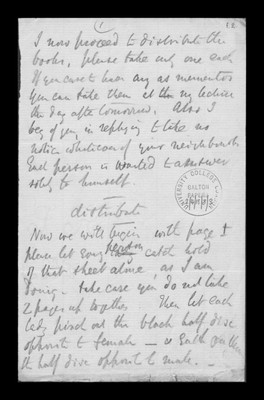 1
I now proceed to distribute the
books, please take only one each
If you care to have any as mementos
you can take them at the lecture
the day after tomorrow. Also I
beg of you in replying to take no
notice whatever of your neighbours
Each person is wanted to answer
solely to himself.
UNIVERSITY COLLEGE
GALTON
PAPERS
distribute
Now we will begin with page 1
please let every person catch hold
of that sheet alone as I am
doing. take care you do not take
2 pages up together Then let each
lady pinch out the black half disc
opposite to female — & each gentln
the half disc opposite to male. —